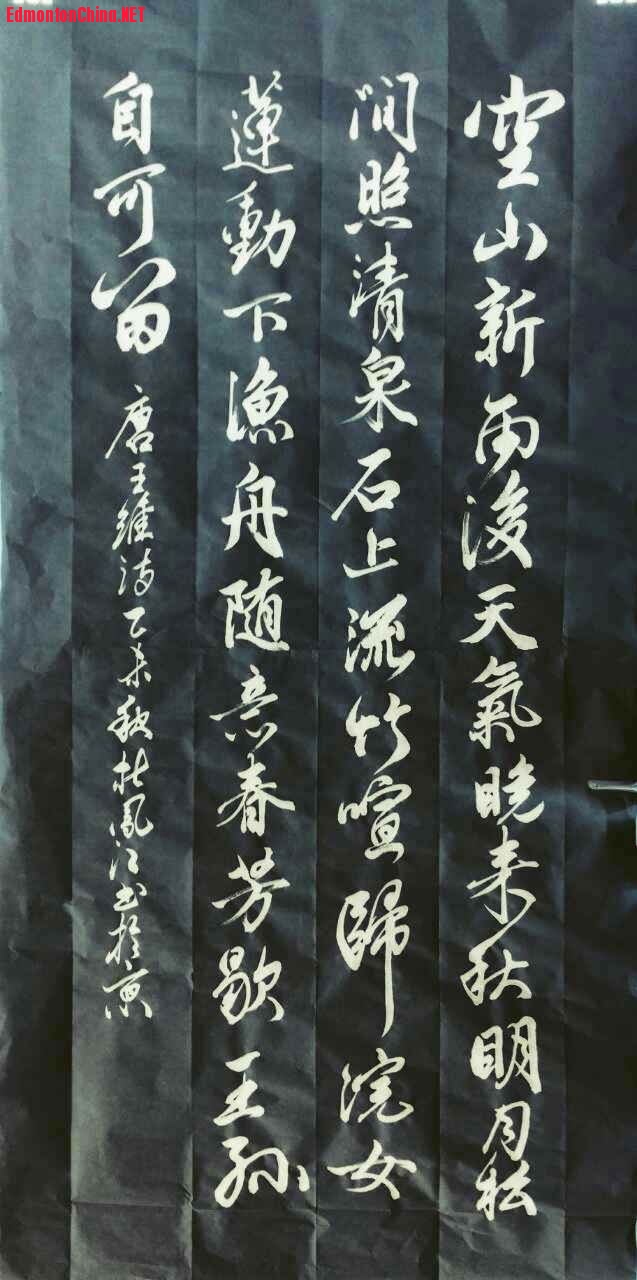 EdmontonChina.NET
空山新雨後天氣晚来秋明月松
間照清泉石上流竹喧歸浣女
蓮動下漁舟随意春芳歇王孫
自可留
唐王維詩乙未秋杜鳳江书於京